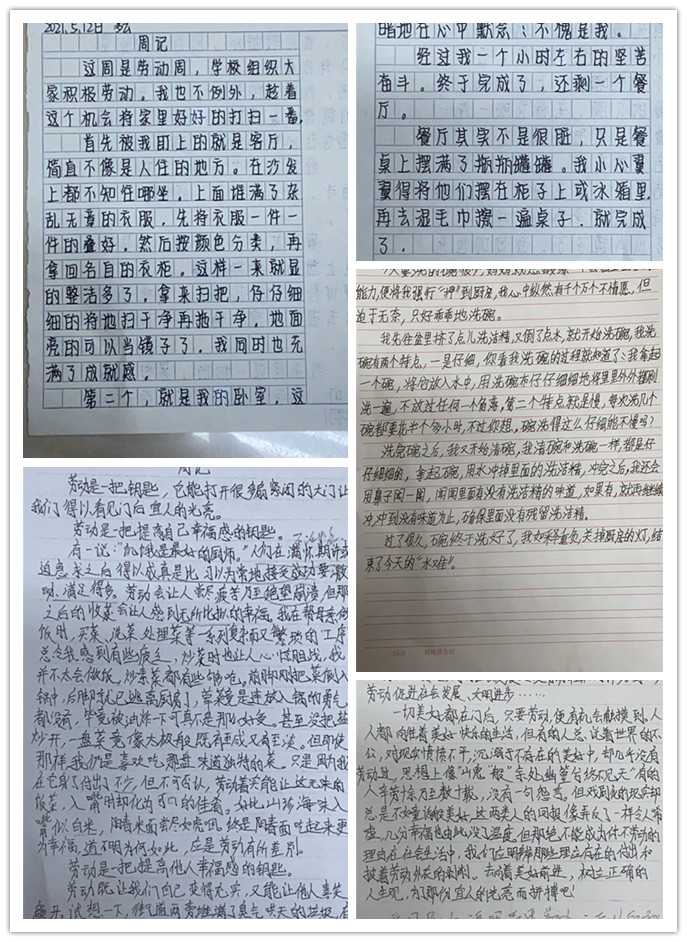 2021.5.12日
周记
这周是劳动周，学校组织大
家积极劳动。我也不例外，趁着
这个机会将家里好好的打扫一番。
首先被我盯上的就是客厅，
简直不像是人住的地方。在沙发
上都不知往哪坐，上面堆满了杂
乱无章的衣服。先将衣服一件一
件的叠好，然后按颜色分类，再
拿回各自的衣柜。这样一来就显
的整洁多了，拿来扫把，仔仔细
细的将地扫干净再拖干净，地面
亮的可以当镜子了，我同时也充
满了成就感。
第二个，就是我的卧室，这
暗地在心中默念：不愧是我。
经过我一个小时左右的坚苦
奋斗。终于完成了，还剩一个餐
厅。
餐厅其实不是很脏，只是餐
桌上摆满了瓶瓶罐罐。我小心翼
翼得将他们摆在柜子上或冰箱里，
再去湿毛巾擦一遍桌子，就完成
了。
能力，便将我强行“押”到厨房，我心中纵然有千个万个不情愿，但
迫于无奈，只好乖乖地洗碗。
我先往盆里挤了点儿洗洁精，又倒了点水，就开始洗碗，我洗
碗有两个特点，一是仔细，你看我洗碗的过程就知道了：我拿起
一个碗，将它放入水中，用洗碗布仔仔细细地将里里外外都刷
洗一遍，不放过任何一个角落，第二个特点就是慢，每次洗几个
碗都要花半个多小时，不过你想，碗洗得这么仔细能不慢吗？
洗完碗之后，我又开始清碗，我清碗和洗碗一样，都是仔
仔细细的，拿起碗，用水冲掉里面的洗洁精，冲完之后，我还会
用鼻子闻一闻，闻闻里面有没有洗洁精的味道，如果有，就再继续
冲，冲到没有味道为止，确保里面没有残留洗洁精。
过了很久，碗终于洗好了，我如释重负，关掉厨房的灯，结
束了今天的“水难”。
周记
劳动是一把钥匙，它能打开很多扇窓闭的大门让
我们得以看见门后宜人的光亮。
劳动是一把提高自己幸福感的钥匙。
有一说：“饥饿是最好的厨师。”人们在满怀期许或
迫急求之后得以成真是比
呦、满足得多。劳动会让人尝尽疲劳乃至绝望崩溃但那
之后的收获会让人感到无所比拟的幸福。我在帮母亲做
饭时，买菜、洗菜、处理菜等一系列复杂而又繁琐的工序
总令我感到有些疲乏，炒菜时也让人心惊胆战，我
并不太会做饭，炒素菜都有些够呛。前脚刚把菜倒入
锅中，后脚就已逃离厨房了，荤菜竟是连放入锅的勇气
都没有，毕竟被油炸一下可真不是那么好受。甚至没把盐
炒开，一盘菜竟像太极般既有至咸又有至淡。但即使
那样我仍是喜欢吃那盘味道独特的菜。只是因为我
在它身了付出了不少，但不可否认，劳动着实能让这无味的
饭菜，入嘴时却化为可口的佳肴。
幸福，道不明为何如此，应是劳动有所差别。
劳动是一把提高他人幸福感的钥匙。
劳动既让我们自己变得充实，又能让他人喜笑
颜开。试想一下，街道两旁堆满了臭气哄天的垃圾，
劳动促进社会发展、文明进步……
一切美好都在门后，只要劳动，便有机会触摸到，人
人都向往着美好快乐的生活，但有的人总说着世界的不
公，对现实愤愤不平，沉溺于不存在的美好中，却几乎没有
劳动过，思想上像“山鬼”般“余处幽篁兮终不见天”有的
人辛劳十年乃至数十载，没有一句怨言。但戏剧的现实却
总是不如童话般美好，这两类人的回报像弄反了一样令人希
虚，几分幸福也由此没了温度，但那绝不能成为什不劳动的
理由在社会生活中，我们应明辨那些理应存在的付出和
披着劳动外衣的剥削。去向着美好前进，树立正确的
人生观，为了那份宜人的光亮而拼搏吧！